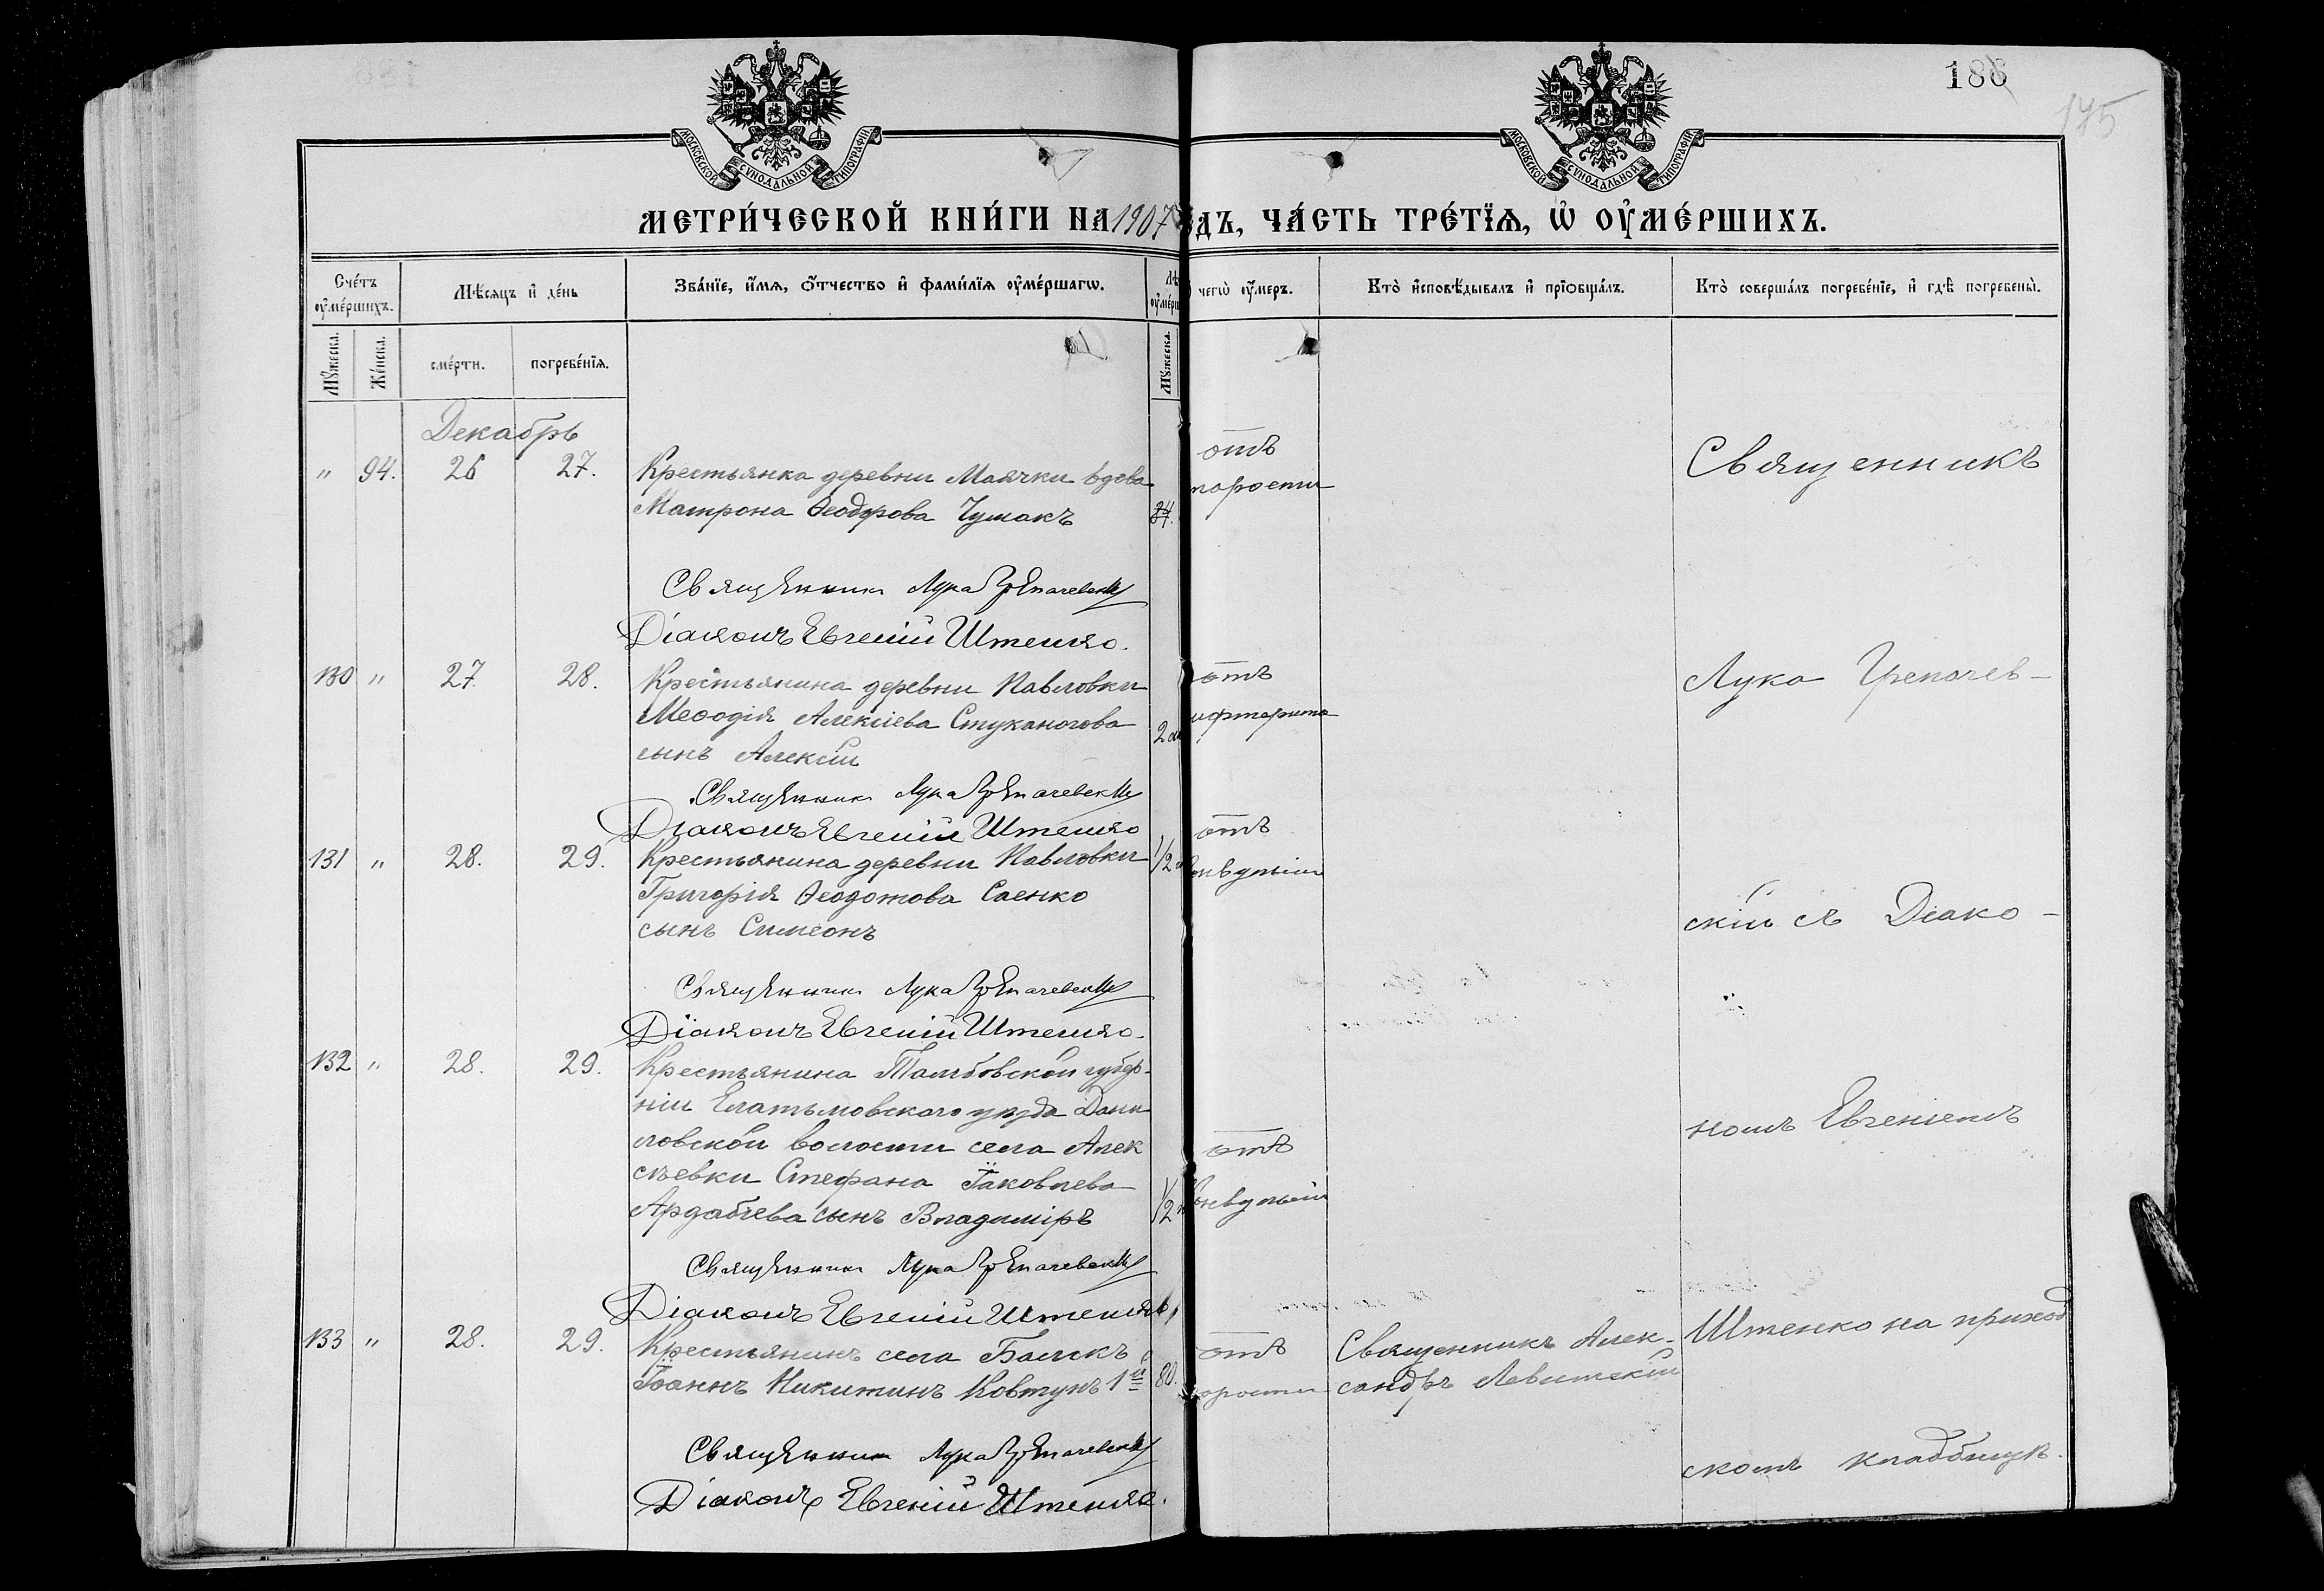 186
145
МОСКОВСКОЙ СУНОДАЛЬНОЙ ТИПОГРАФІИ
МОСКОВСКОЙ СУНОДАЛЬНОЙ ТИПОГРАФІИ
МЕТРИ́ЧЕСКОЙ КНИ́ГИ НА 1907
ДЪ, ЧА́СТЬ ТРЕ́ТЇѦ, Ѡ҆ ОУ҆МЕ́РШИХЪ.
Сче́тъ оу҆ме́ршихъ.
Мѣ́сяцъ и҆ де́нь
Зва́нїе, и҆́мя, ѻ҆́тчество и҆ фами́лїя оу҆ме́ршагѡ.
чегѡ̀ оу҆́меръ.
Кто̀ и҆сповѣ́дывалъ и҆ прїѡбща́лъ.
Кто̀ соверша́лъ погребе́нїе, и҆ гдѣ̀ погребены̀.
Му́жеска.
Же́нска.
сме́рти.
погребе́нїя.
Му́жеска.
Декабрь
" 94. 26 27. Крестьянка деревни Маячки вдова
Матрона Ѳеодорова Чумакъ 84.
отъ
тарости
Священникъ
Священник Лука Грепачевскій
Діаконъ Евгеній Штенко.
130 " 27. 28. Крестьянина деревни Павловки
Меѳодія Алексіева Стуканогова
сынъ Алексій
2
отъ
ифтерита
Лука Грепачев-
Священник Лука Грепачевскій
Діаконъ Евгеній Штенко
131 " 28. 29. Крестьянина деревни Павловки 1/2
Григорія Ѳеодотова Саенко
сынъ Симеонъ
отъ
онвульсіи
скій съ Діако-
Священник Лука Грепачевскій
Діаконъ Евгеній Штенко.
132 " 28. 29. Крестьянина Тамбовской губер-
ніи Елатьмовскаго уѣзда Дани
ловской волости села Алек
сѣевки Стефана Іаковлева
Ардабіева сынъ Владиміръ 1/2
отъ
онвульсіи
номъ Евгеніемъ
Священник Лука Грепачевскій
Діаконъ Евгеній Штенко
133 " 28. 29. Крестьянинъ села
Іоаннъ Никитинъ Ковтунъ 1й 80.
отъ
орости
Священникъ Алек-
сандръ Левитскій
Штенко на приход
скомъ кладбищѣ.
Священник Лука Грепачевскій
Діаконъ Евгеній Штенко.